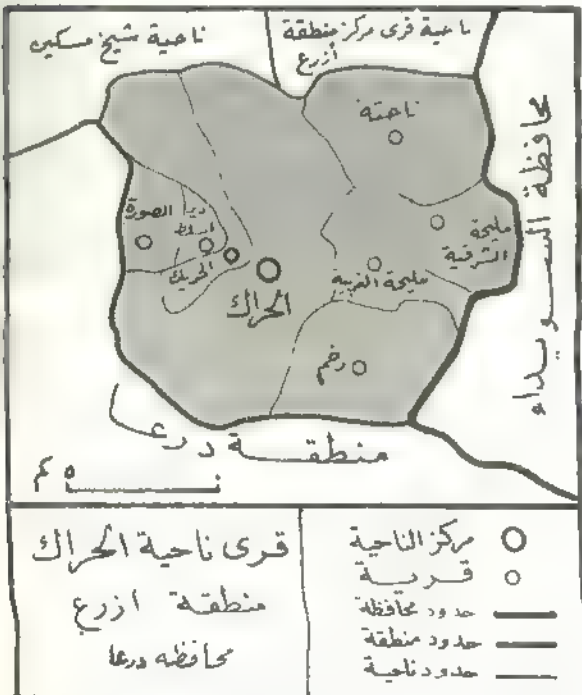 ناحية شيخ مسكين
ناحية قرى مركز منطقة
أزرع
محافظة السويداء
ناحتة
مليحة
الشرقية
الصورة
دير
السلط
الحريك
الحراك
مليحة الغربية
رخم
منطقة درعا
٥ كم
قرى ناحية الحراك
منطقة ازرع
محافظه درعا
مركز الناحية
قرية
حدود محافظة
حدود منطقة
حدود ناحية